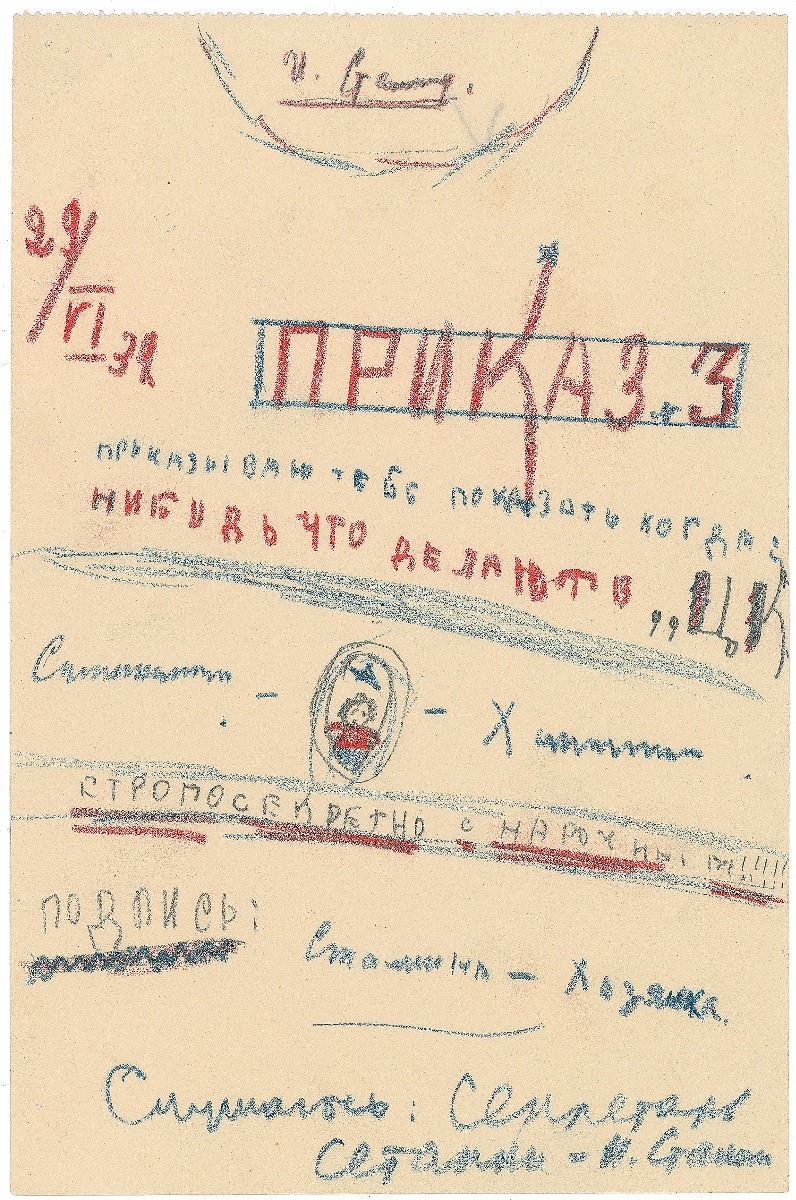 И. Сталин.
29/VI 32
ПРИКАЗ. 3
ПРИКАЗЫВАЮ ТЕБЕ ПОКАЗАТЬ КОГДА:
НИБУДЬ ЧТО ДЕЛАЮТЬ
„ЦК
СТРОГОСЕКРЕТНО С НАРОЧ
ПОДПИСЬ:
Сталина – Хозяйка.
Слушаюсь: Секретарь
Сетанки – И. Сталин